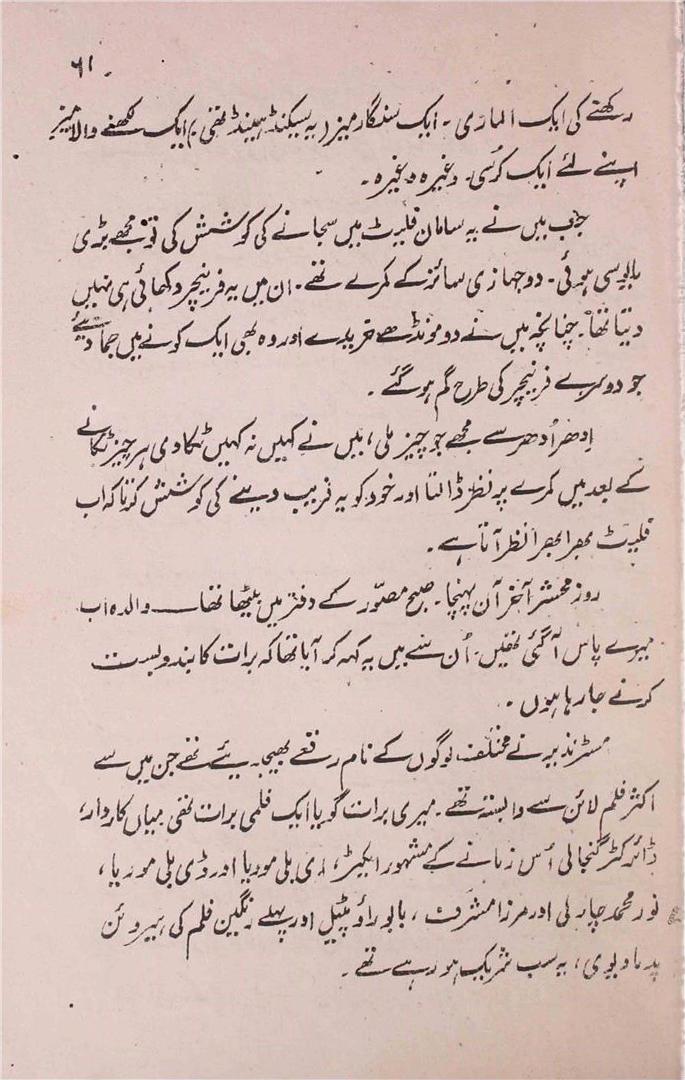 ۶۱
رکھنے کی ایک الماری ۔ ایک سنگار میز (یہ سیکنڈ ہینڈ تھی) ایک لکھنے والا میز
اپنے لئے ایک کرسی ۔ وغیرہ وغیرہ ۔
جب میں نے یہ سامان فلیٹ میں سجانے کی کوشش کی تو مجھے بڑی
مایوسی ہوئی ۔ دو جہازی سائز کے کمرے تھے ۔ ان میں یہ فرنیچر دکھائی ہی نہیں
دیتا تھا ۔ چنانچہ میں نے دو مونڈھے خریدے اور وہ بھی ایک کونے میں جما دیئے
جو دوسرے فرنیچر کی طرح گم ہو گئے ۔
اِدھر اُدھر سے مجھے جو چیز ملی ، میں نے کہیں نہ کہیں ٹکا دی ہر چیز ٹکانے
کے بعد میں کمرے پر نظر ڈالتا اور خود کو یہ فریب دینے کی کوشش کرتا کہ اب
فلیٹ بھرا بھرا نظر آتا ہے ۔
روز محشر آخر آن پہنچا ۔ صبح مصوّر کے دفتر میں بیٹھا تھا ــــ والدہ اب
میرے پاس آ گئی تھیں ۔ اُن سے میں یہ کہہ کر آیا تھا کہ برات کا بندوبست
کرنے جا رہا ہوں ۔
مسٹر نذیر نے مختلف لوگوں کے نام رقعے بھیج دیئے تھے جن میں سے
اکثر فلم لائن سے وابستہ تھے ۔ میری برات گویا ایک فلمی برات تھی میاں کاردار ،
ڈائرکٹر گنجالی اُس زمانے کے مشہور ایکٹر ، ای بلی موریا اور ڈی بلی موریا ،
نور محمد چارلی اور مرزا مشرف ، بابو راؤ پٹیل اور پہلے رنگین فلم کی ہیروئن
پدما دیوی ، یہ سب شریک ہو رہے تھے ۔